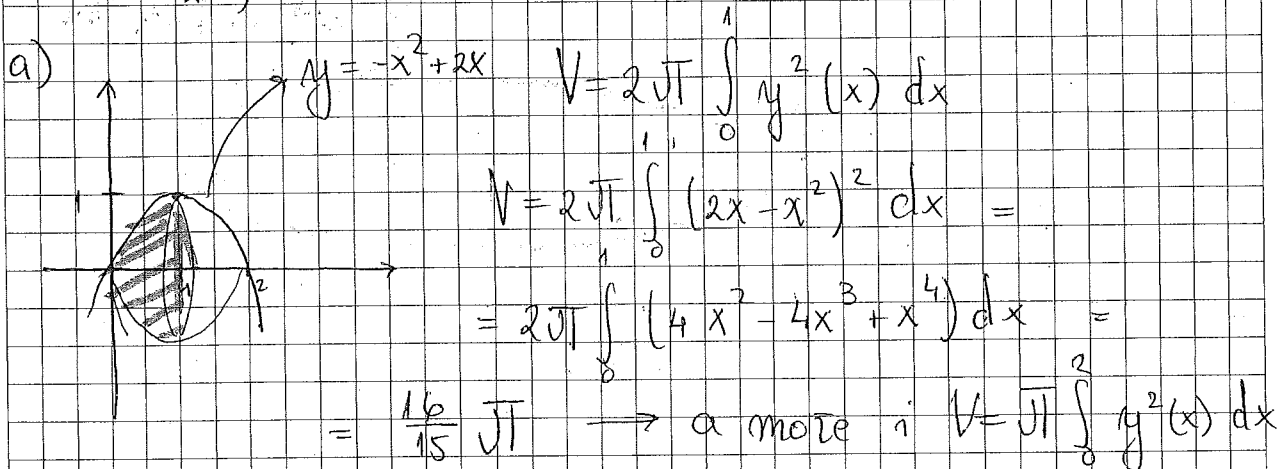 a) y = -x² + 2x V = 2π ∫₀¹ y²(x) dx
V = 2π ∫₀¹ (2x - x²)² dx =
1
= 2π ∫₀¹ (4x² - 4x³ + x⁴) dx =
1 2
= 16/15 π → a može i V = π ∫₀² y²(x) dx